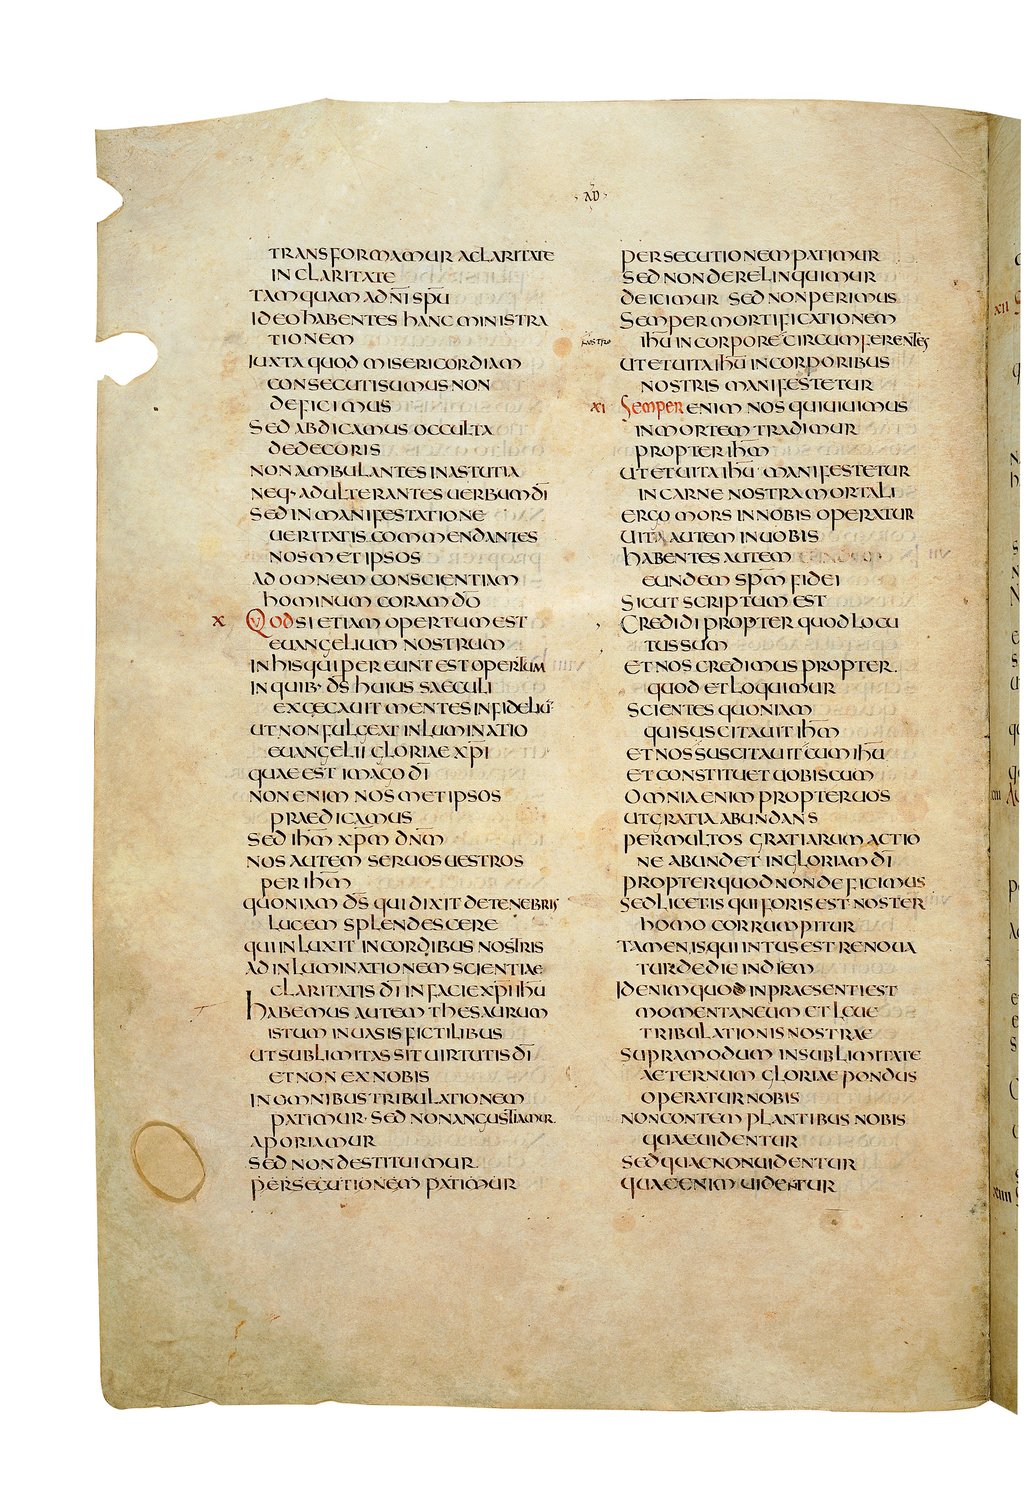 AD
TRANSFORMAMUR A CLARITATE
IN CLARITATE
TAMQUAM A DN̄I SPŪ
IDEO HABENTES HANC MINISTRA
TIONEM
IUXTA QUOD MISERICORDIAM
CONSECUTI SUMUS NON
DEFICIMUS
SED ABDICAMUS OCCULTA
DEDECORIS
NON AMBULANTES IN ASTUTIA
NEQ· ADULTERANTES UERBUM DĪ
SED IN MANIFESTATIONE
UERITATIS COMMENDANTES
NOSMETIPSOS
AD OMNEM CONSCIENTIAM
HOMINUM CORAM DŌ
X QUOD SI ETIAM OPERTUM EST
EUANGELIUM NOSTRUM
IN HIS QUI PEREUNT EST OPERTUM
IN QUIB· DS̄ HUIUS SAECULI
EXCECAUIT MENTES INFIDELIŪ
UT NON FULGEAT INLUMINATIO
EUANGELII GLORIAE XP̄I
QUAE EST IMAGO DĪ
NON ENIM NOSMETIPSOS
PRAEDICAMUS
SED IHM̄ XPM̄ DNM̄
NOS AUTEM SERUOS UESTROS
PER IHM̄
QUONIAM DS̄ QUI DIXIT DE TENEBRIS
LUCEM SPLENDESCERE
QUI INLUXIT IN CORDIBUS NOSTRIS
AD INLUMINATIONEM SCIENTIAE
CLARITATIS DĪ IN FACIE XP̄I IHŪ
HABEMUS AUTEM THESAURUM
ISTUM IN UASIS FICTILIBUS
UT SUBLIMITAS SIT UIRTUTIS DĪ
ET NON EX NOBIS
IN OMNIBUS TRIBULATIONEM
PATIMUR· SED NON ANGUSTIAMUR
APORIAMUR
SED NON DESTITUIMUR
PERSECUTIONEM PATIMUR
PERSECUTIONEM PATIMUR
SED NON DERELINQUIMUR
DEICIMUR SED NON PERIMUS
SEMPER MORTIFICATIONEM
IHŪ IN CORPORE CIRCUMFERENTES
NOSTRO
UT ET UITA IHŪ IN CORPORIBUS
NOSTRIS MANIFESTETUR
XI SEMPER ENIM NOS QUI UIUIMUS
IN MORTEM TRADIMUR
PROPTER IHM̄
UT ET UITA IHŪ MANIFESTETUR
IN CARNE NOSTRA MORTALI
ERGO MORS IN NOBIS OPERATUR
UITA AUTEM IN UOBIS
HABENTES AUTEM
EUNDEM SPM̄ FIDEI
SICUT SCRIPTUM EST
CREDIDI PROPTER QUOD LOCU
TUS SUM
ET NOS CREDIMUS PROPTER
QUOD ET LOQUIMUR
SCIENTES QUONIAM
QUI SUSCITAUIT IHM̄
ET NOS SUSCITAUIT CUM IHŪ
ET CONSTITUET UOBISCUM
OMNIA ENIM PROPTER UOS
UT GRATIA ABUNDANS
PER MULTOS GRATIARUM ACTIO
NE ABUNDET IN GLORIAM DĪ
PROPTER QUOD NON DEFICIMUS
SED LICET IS QUI FORIS EST NOSTER
HOMO CORRUMPITUR
TAMEN IS QUI INTUS EST RENOUA
TUR DE DIE IN DIEM
ID ENIM QUOD IN PRAESENTI EST
MOMENTANEUM ET LEUE
TRIBULATIONIS NOSTRAE
SUPRA MODUM IN SUBLIMITATE
AETERNUM GLORIAE PONDUS
OPERATUR NOBIS
NON CONTEMPLANTIBUS NOBIS
QUAE UIDENTUR
SED QUAE NON UIDENTUR
QUAE ENIM UIDENTUR
XII
XIII
XIIII